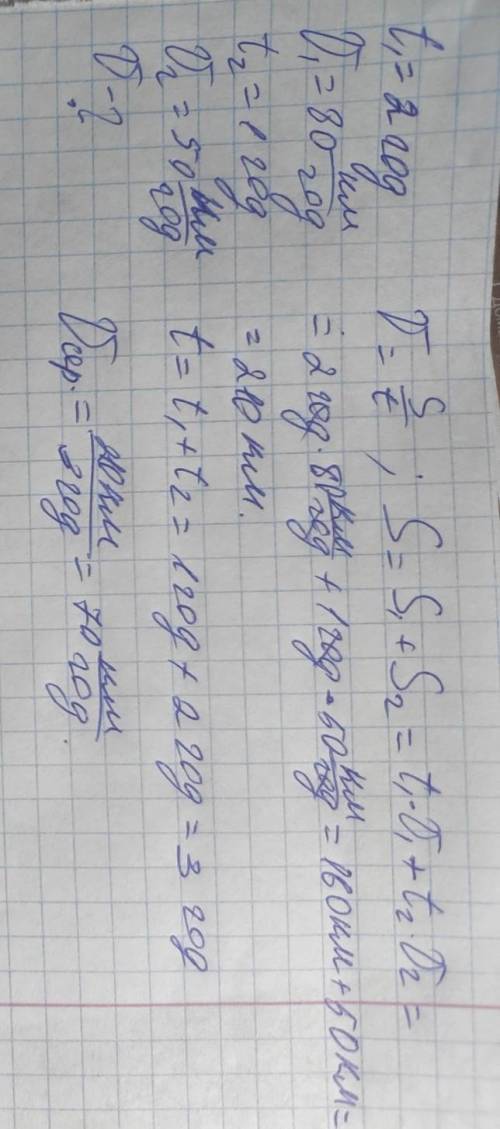 t₁ = 2 год
υ₁ = 80 км/год
t₂ = 1 год
υ₂ = 50 км/год
υ - ?
υ = S/t ; S = S₁ + S₂ = t₁·υ₁ + t₂·υ₂ =
= 2 год · 80 км/год + 1 год · 50 км/год = 160 км + 50 км =
= 210 км.
t = t₁ + t₂ = 1 год + 2 год = 3 год
υсер. = 210 км/3 год = 70 км/год.